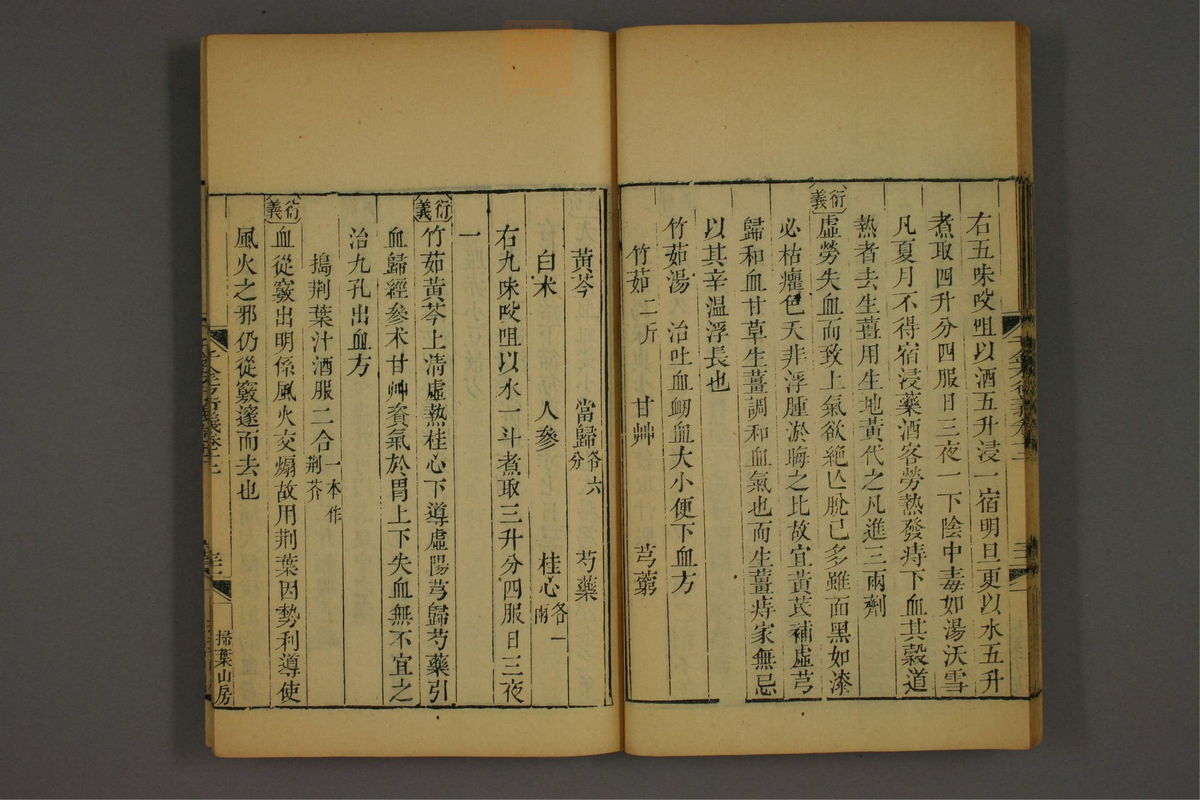 右五味㕮咀以酒五升浸一宿明旦更以水五升
煮取四升分四服日三夜一下陰中毒如湯沃雪
凡夏月不得宿浸藥酒客勞熱發痔下血其穀道
熱者去生薑用生地黃代之凡進三兩劑
衍義 虛勞失血而致上氣欲絕亾脫已多雖面黑如漆
必枯癯色夭非浮腫淤晦之比故宜黃芪補虛芎
歸和血甘草生薑調和血氣也而生薑痔家無忌
以其辛温浮長也
竹茹湯 治吐血衂血大小便下血方
竹茹二斤 甘艸 芎藭
黃芩 當歸各六分 芍藥
白术 人參 桂心各一兩
右九味㕮咀以水一斗煮取三升分四服日三夜
一
衍義 竹茹黃芩上清虛熱桂心下導虛陽芎歸芍藥引
血歸經參术甘艸資氣於胃上下失血無不宜之
治九孔出血方
搗荆葉汁酒服二合一本作荆芥
衍義 血從竅出明係風火交煽故用荆葉因勢利導使
風火之邪仍從竅邃而去也
掃葉山房